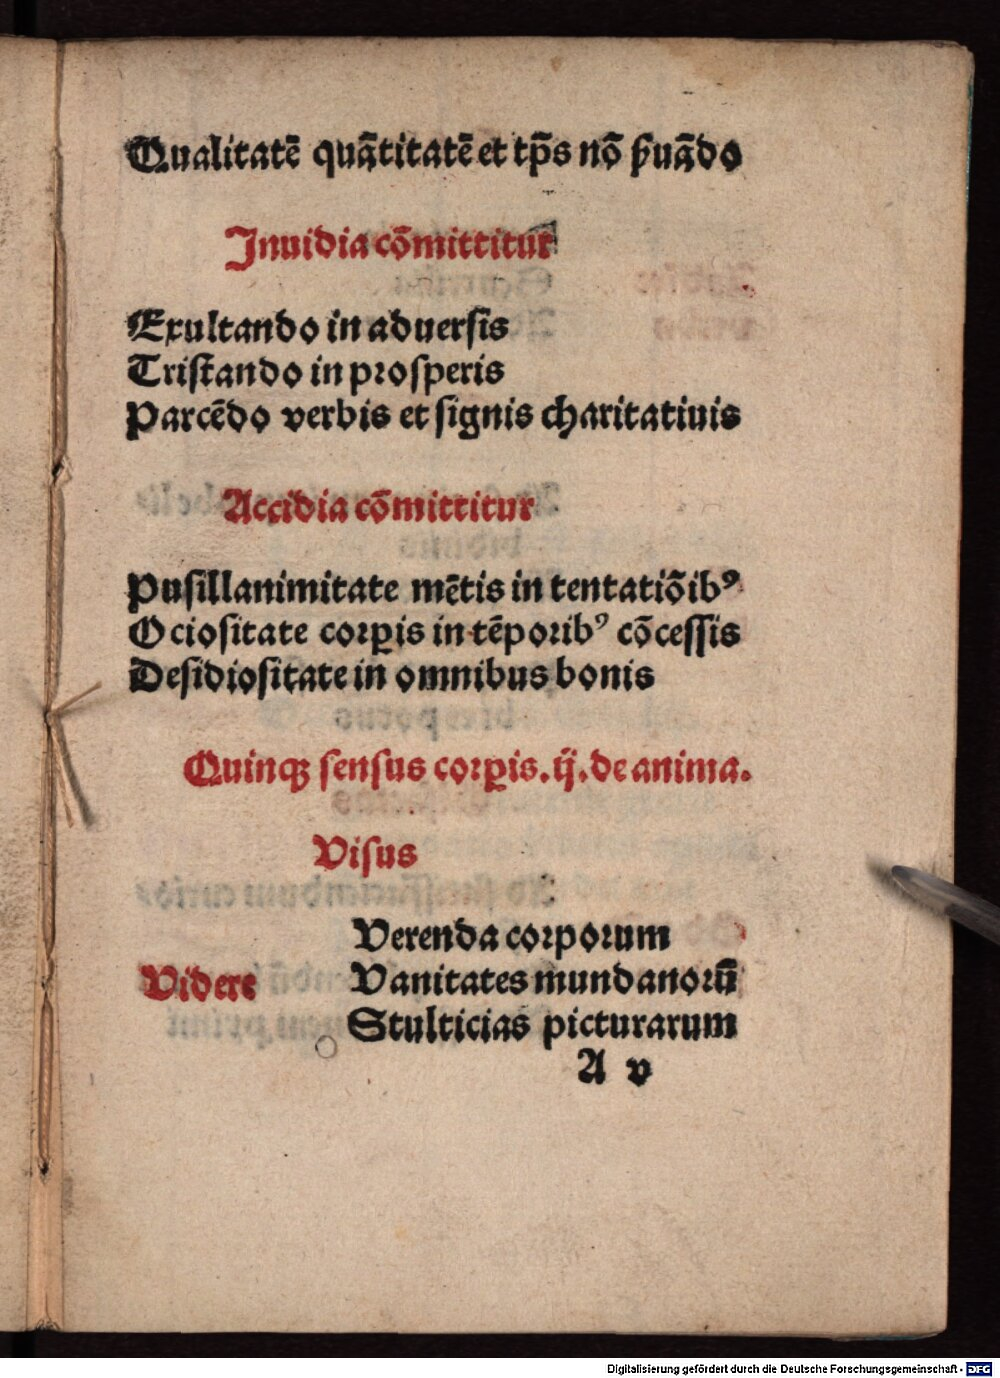 Qualitatē quãtitatē et tp̄s nõ ẜuãdo
Inuidia cõmittitur
Exultando in aduerſis
Triſtando in proſperis
Parcēdo verbis et ſignis charitatiuis
Accidia cõmittitur
Puſillanimitate mētis in tentatiõibꝰ
Ocioſitate corꝑis in tēporibꝰ cõceſſis
Deſidioſitate in omnibus bonis
Quinqꝫ ſenſus corꝑis. ij. de anima.
Viſus
Verenda corporum
Videre Vanitates mundanorū
Stulticias picturarum
A v
Digitalisierung gefördert durch die Deutsche Forschungsgemeinschaft - DFG